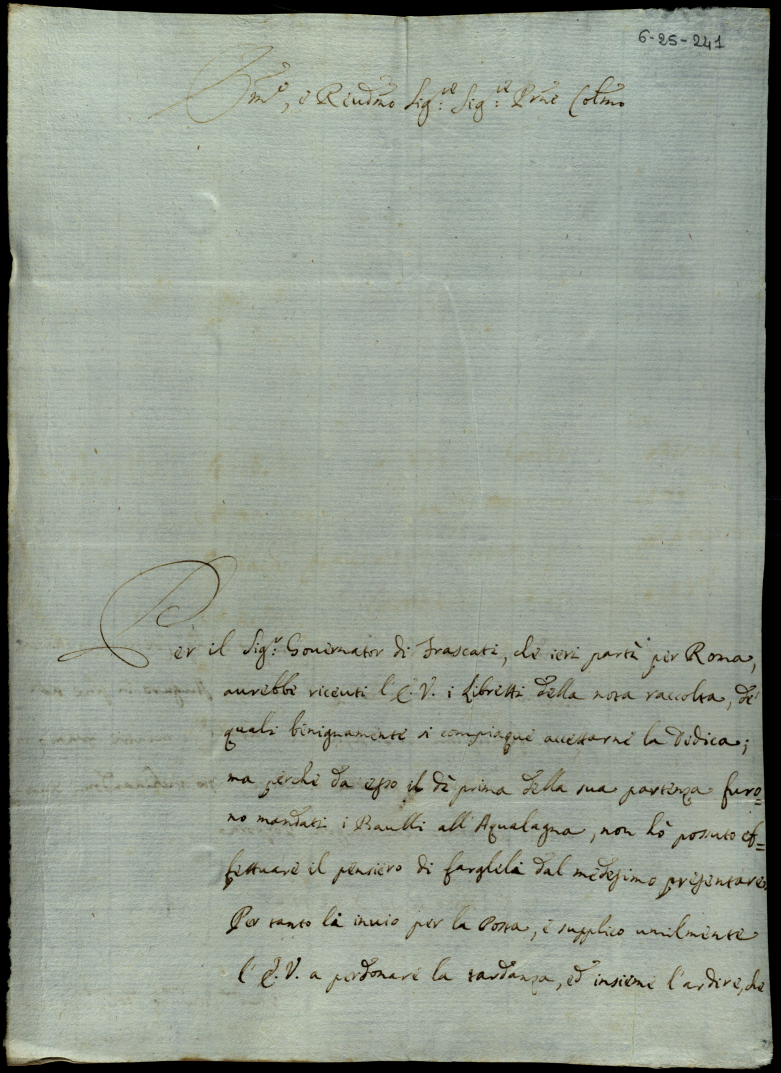 6-25-241
Em̃o, e Reud̃mo Sig:re Sig:re Prñe Colm̃o
Per il Sig:r Gouernator di Frascati, che ieri partì per Roma,
aurebbe riceuti l'E. V. i Libretti della nota raccolta, de'
quali benignamente si compiaque accettarne la Dedica;
ma perche da esso il dì prima della sua partenza furo=
no mandati i Baulli all'Aqualagna, non hò possuto ef=
fettuare il pensiero di farglieli dal medesimo presentare.
Per tanto li inuio per la Posta, e supplico umilmente
l'E. V. a perdonare la tardanza, ed insieme l'ardire, che